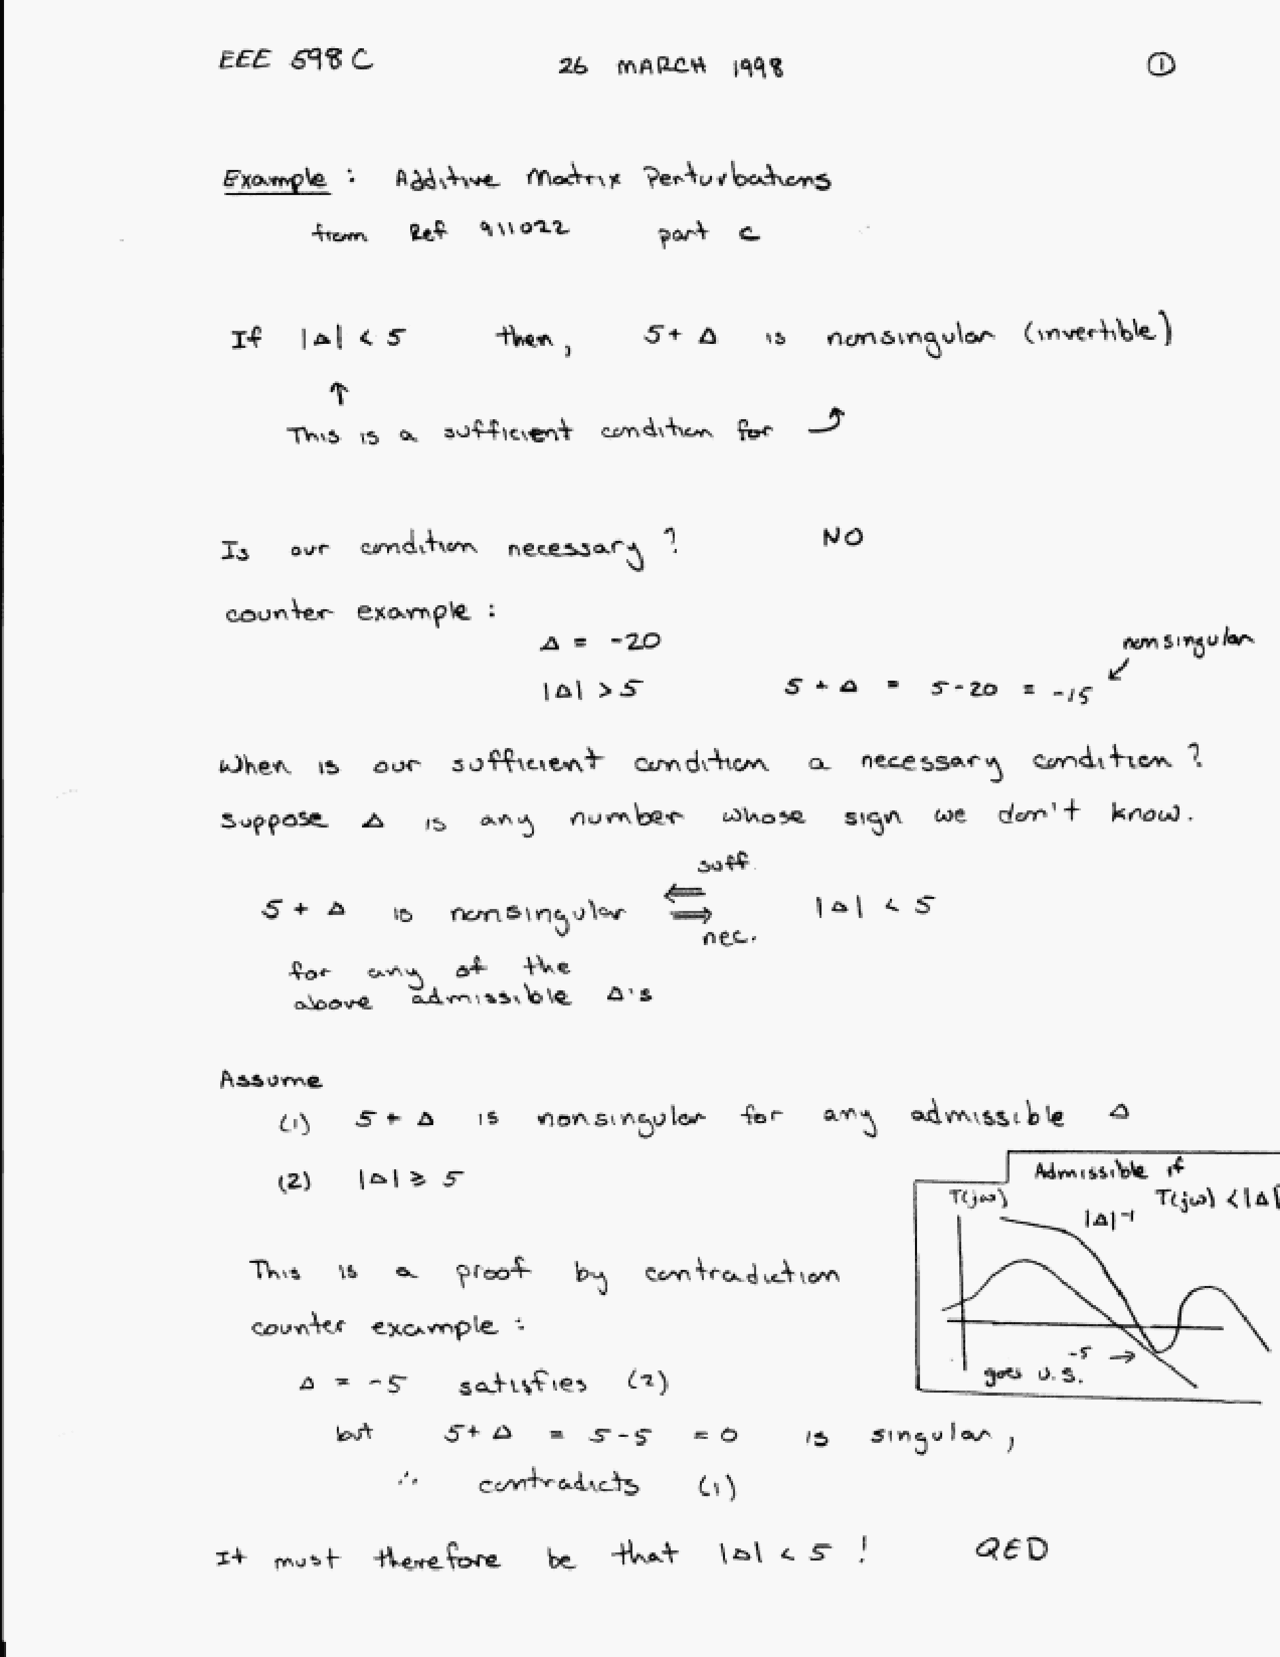 EEE 598C 26 MARCH 1998 ①
Example : Additive Matrix Perturbations
from Ref 911022 part c
If |Δ| < 5 then, 5 + Δ is nonsingular (invertible)
↑
This is a sufficient condition for ⤴
Is our condition necessary ? NO
counter example :
Δ = -20
nonsingular
|Δ| > 5 5 + Δ = 5 - 20 = -15
When is our sufficient condition a necessary condition ?
Suppose Δ is any number whose sign we don't know.
suff.
5 + Δ is nonsingular ⇐ ⇒ |Δ| < 5
nec.
for any of the
above admissible Δ's
Assume
(1) 5 + Δ is nonsingular for any admissible Δ
(2) |Δ| ≥ 5
Admissible if
T(jω) T(jω) < |Δ|
|Δ|⁻¹
This is a proof by contradiction
counter example :
-5 →
goes U.S.
Δ = -5 satisfies (2)
but 5 + Δ = 5 - 5 = 0 is singular,
∴ contradicts (1)
It must therefore be that |Δ| < 5 ! QED